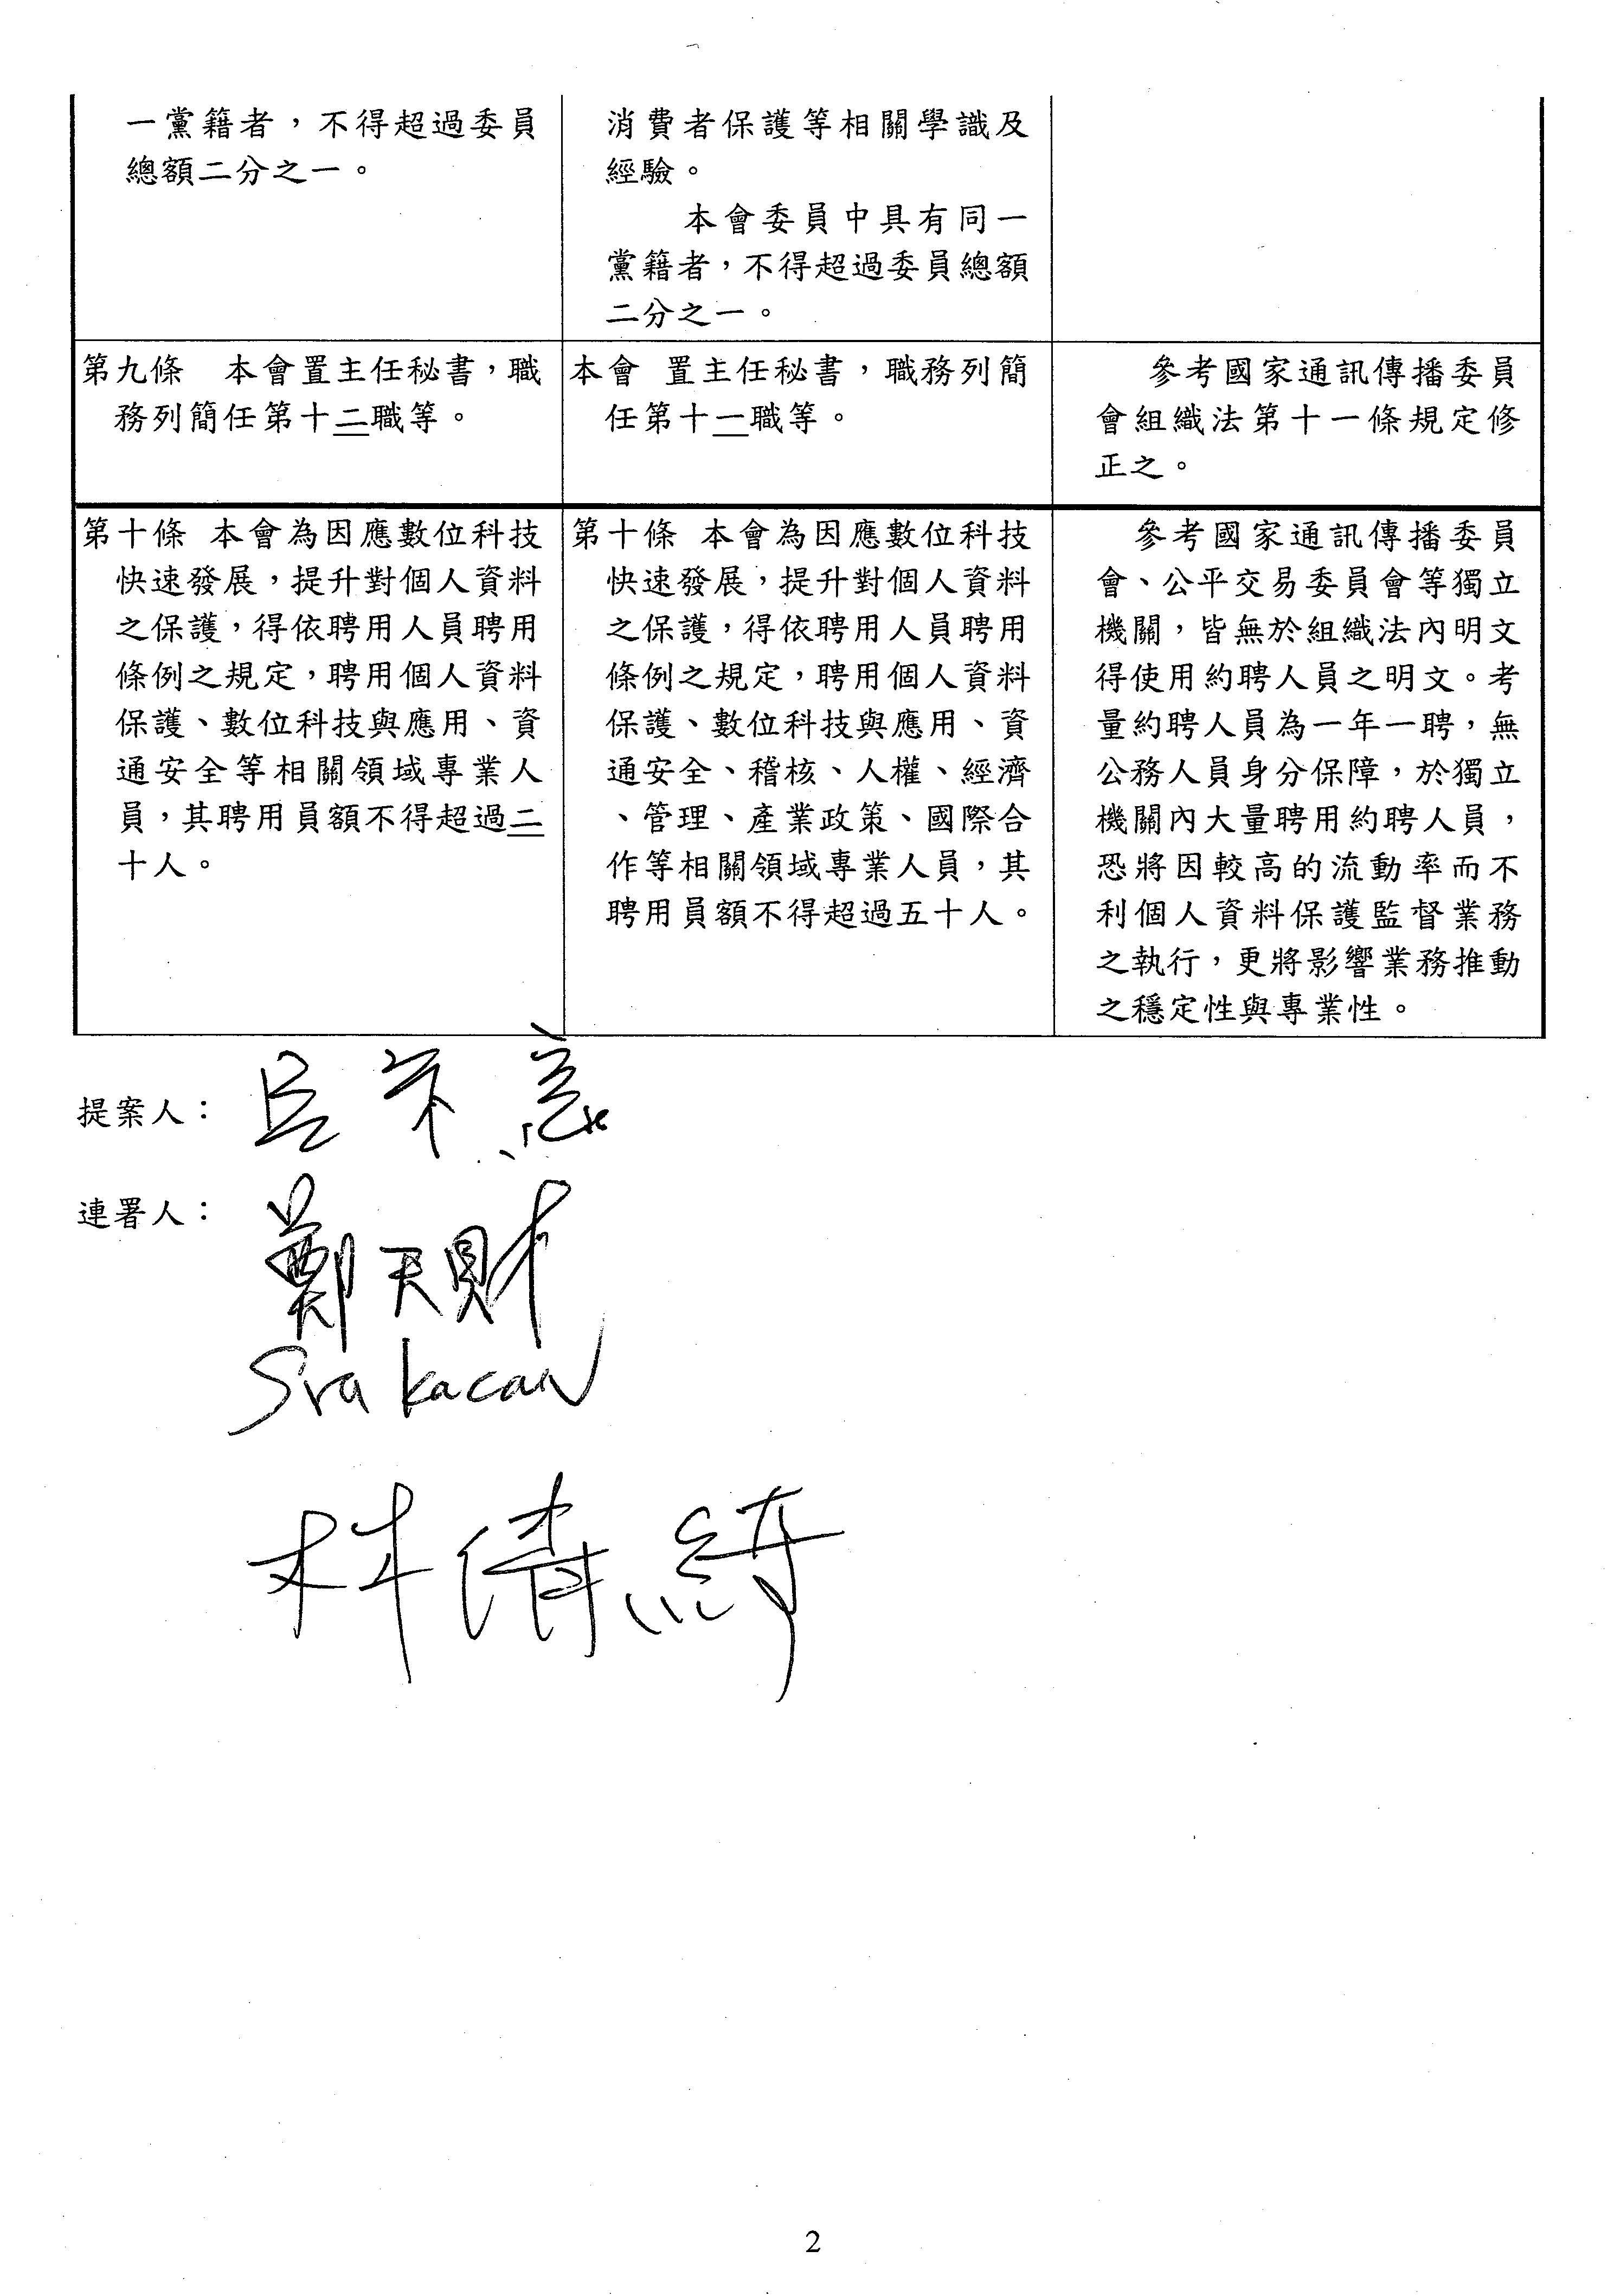 一黨籍者，不得超過委員
總額二分之一。
消費者保護等相關學識及
經驗。
本會委員中具有同一
黨籍者，不得超過委員總額
二分之一。
第九條　本會置主任秘書，職
務列簡任第十二職等。
本會 置主任秘書，職務列簡
任第十一職等。
參考國家通訊傳播委員
會組織法第十一條規定修
正之。
第十條 本會為因應數位科技
快速發展，提升對個人資料
之保護，得依聘用人員聘用
條例之規定，聘用個人資料
保護、數位科技與應用、資
通安全等相關領域專業人
員，其聘用員額不得超過二
十人。
第十條 本會為因應數位科技
快速發展，提升對個人資料
之保護，得依聘用人員聘用
條例之規定，聘用個人資料
保護、數位科技與應用、資
通安全、稽核、人權、經濟
、管理、產業政策、國際合
作等相關領域專業人員，其
聘用員額不得超過五十人。
參考國家通訊傳播委員
會、公平交易委員會等獨立
機關，皆無於組織法內明文
得使用約聘人員之明文。考
量約聘人員為一年一聘，無
公務人員身分保障，於獨立
機關內大量聘用約聘人員，
恐將因較高的流動率而不
利個人資料保護監督業務
之執行，更將影響業務推動
之穩定性與專業性。
提案人：
連署人：
鄭天財
Sra Kacaw
林倩綺
2